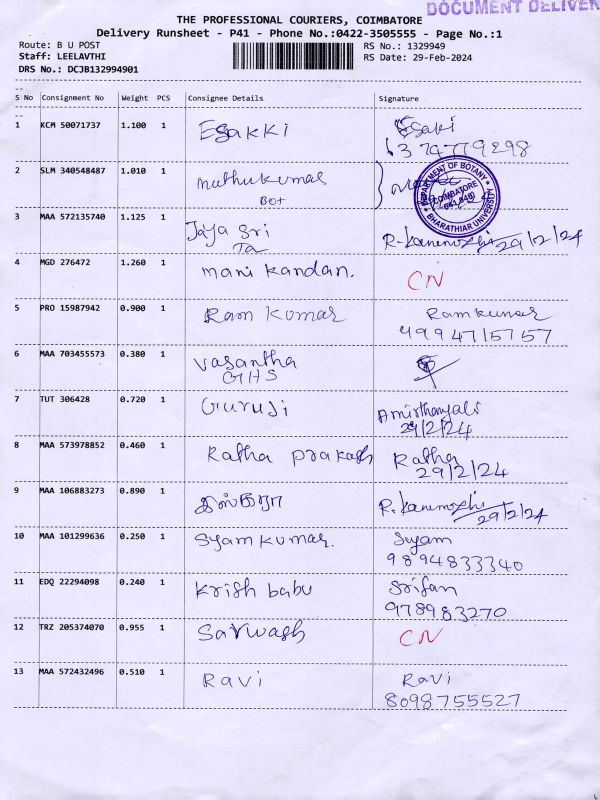 DOCUMENT DELIVER
THE PROFESSIONAL COURIERS, COIMBATORE
Delivery Runsheet - P41 - Phone No.:0422-3505555 - Page No.:1
Route: B U POST
RS No.: 1329949
Staff: LEELAVTHI
RS Date: 29-Feb-2024
DRS No.: DCJB132994901
S No Consignment No Weight PCS Consignee Details Signature
1 KCM 50071737 1.100 1 Esakki Esaki
6374779298
2 SLM 340548487 1.010 1 muthukumar
Bot
DEPARTMENT OF BOTANY
COIMBATORE
641 046
BHARATHIAR UNIVERSITY
3 MAA 572135740 1.125 1 Jaya Sri R. Kanimozhi 29/2/24
Ta
4 MGD 276472 1.260 1 mani kandan. CN
5 PRO 15987942 0.900 1 Ram Kumar Ramkumar
49994715757
6 MAA 703455573 0.380 1 Vasantha
GHS
7 TUT 306428 0.720 1 Guruji Amirthanjali
29/2/24
8 MAA 573978852 0.460 1 Ratha prakash Ratha
29/2/24
9 MAA 106883273 0.890 1 R. Kanimozhi
29/2/24
10 MAA 101299636 0.250 1 Syam kumar. Syam
9894833340
11 EDQ 22294098 0.240 1 Krish babu Srifan
978983270
12 TRZ 205374070 0.955 1 Sarwash CN
13 MAA 572432496 0.510 1 Ravi Ravi
8098755527